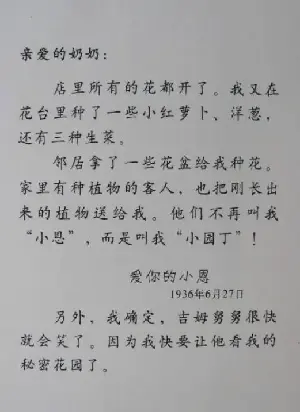 亲爱的奶奶：
店里所有的花都开了。我又在
花台里种了一些小红萝卜、洋葱，
还有三种生菜。
邻居拿了一些花盆给我种花。
家里有种植物的客人，也把刚长出
来的植物送给我。他们不再叫我
“小恩”，而是叫我“小园丁”！
爱你的小恩
1936年6月27日
另外，我确定，吉姆舅舅很快
就会笑了。因为我快要让他看我的
秘密花园了。